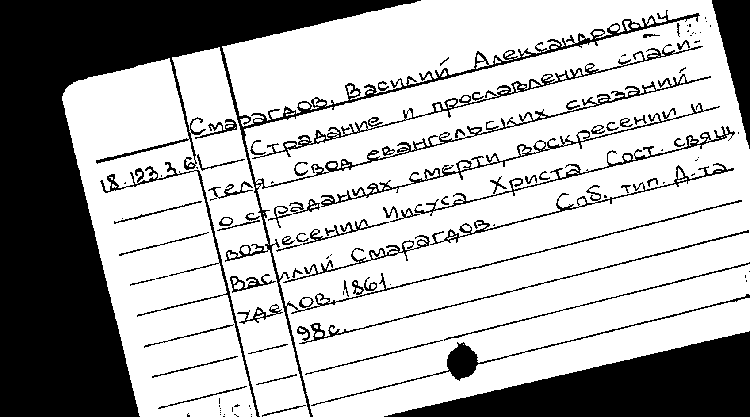 Смарагдов, Василий Александрович
Страдание и прославление спаси-
18.123.3.61 теля. Свод евангельских сказаний
о страданиях, смерти, воскресении и
вознесении Иисуса Христа Сост. свящ.
Василий Смарагдов. Спб., тип. Д-та
уделов, 1861.
98с.